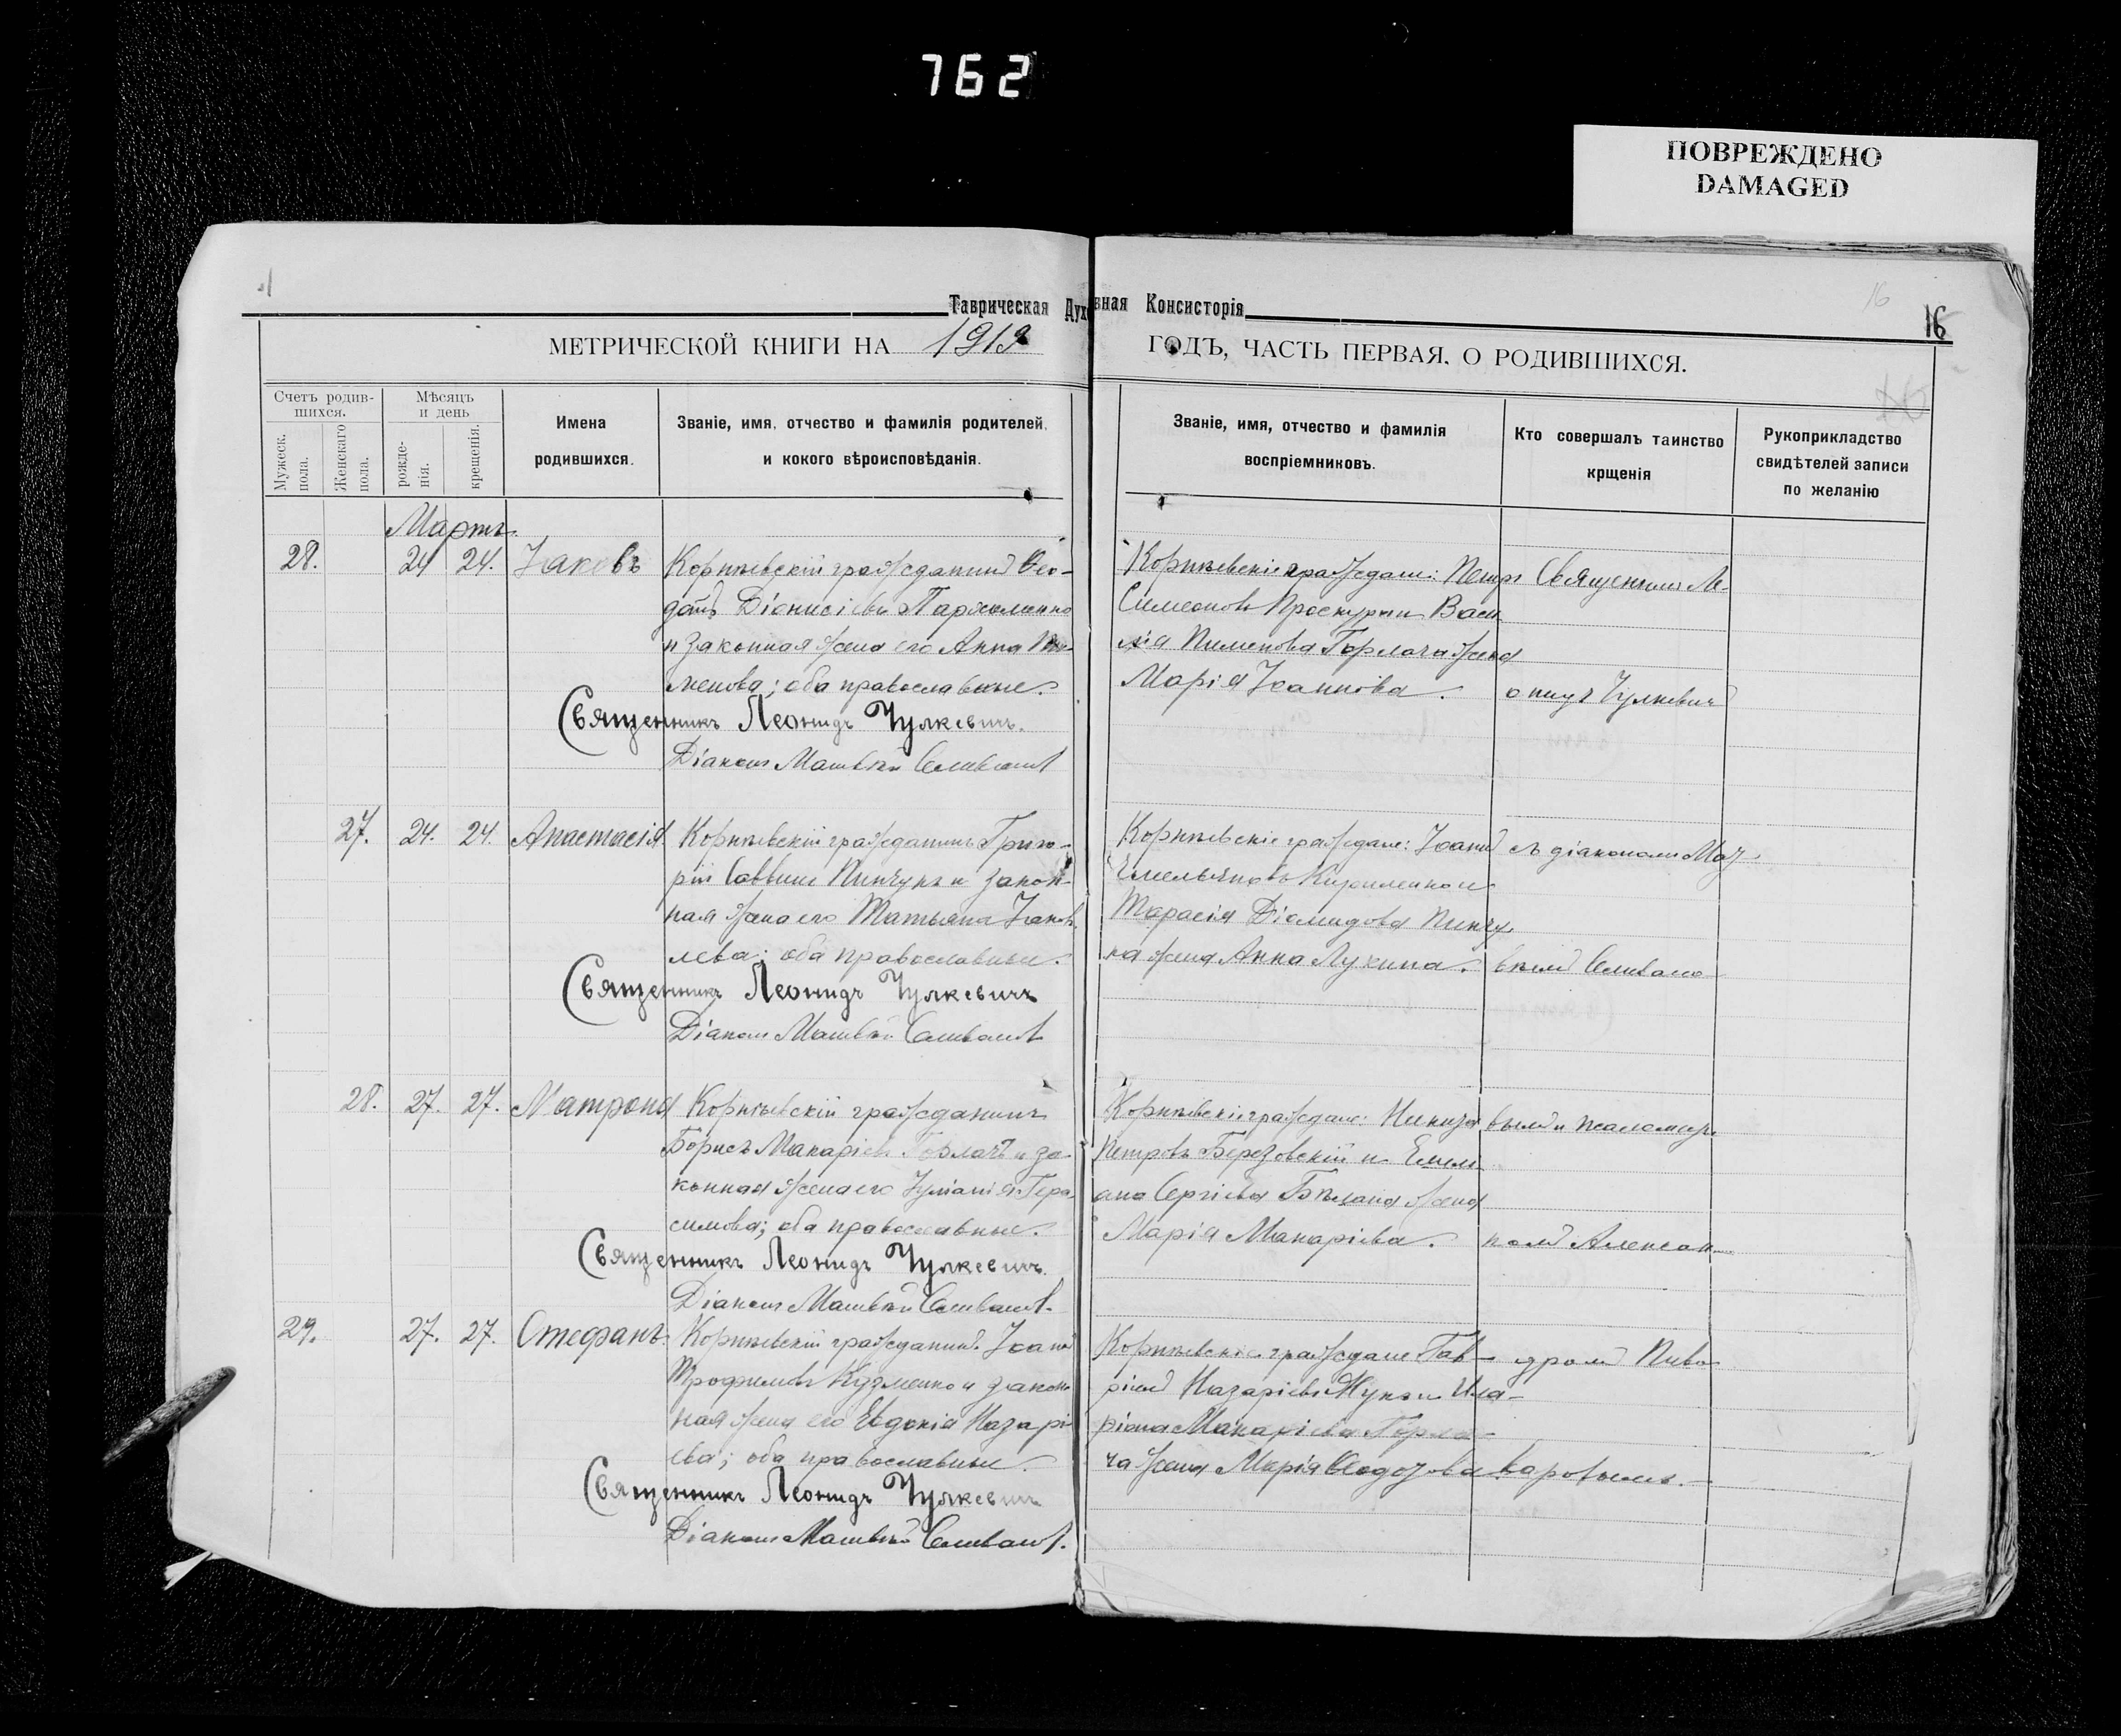 762
ПОВРЕЖДЕНО
DAMAGED
16
16
Таврическая Духовная Консисторія
МЕТРИЧЕСКОЙ КНИГИ НА 1919 ГОДЪ, ЧАСТЬ ПЕРВАЯ, О РОДИВШИХСЯ.
Счетъ родив-
шихся.
Мужеск.
пола.
Женскаго
пола.
Мѣсяцъ
и день
рожде-
нія.
крещенія.
Имена
родившихся.
Званіе, имя, отчество и фамилія родителей,
и кокого вѣроисповѣданія.
Званіе, имя, отчество и фамилія
воспріемниковъ.
Кто совершалъ таинство
крщенія
Рукоприкладство
свидѣтелей записи
по желанію
Мартъ
28. 24 24. Іаковъ
Корнѣевскій гражданинъ Ѳео-
Діонисіевъ Пархоменко
и законная жена его Анна Пи-
менова; оба православные.
Священникъ Леонидъ Чулкевичъ.
Діаконъ Матвѣй Селивановъ
Корнѣевскіе граждане: Петръ
Симеоновъ Проскуринъ Васи
лія Пименова Горлача жена
Марія Іоаннова.
Священникъ Ле-
онидъ Чулкевичъ
27. 24. 24. Анастасія
Корнѣевскій гражданинъ Григо-
рій Саввинъ Пинчукъ и закон-
ная жена его Татьяна Іаков
лева; оба православные.
Священникъ Леонидъ Чулкевичъ
Діаконъ Матвѣй Селивановъ
Корнѣевскіе граждане: Іоаннъ
Емельяновъ Кириленко и
Тарасія Діомидова Пинчу
ка жена Анна Лукина.
съ діакономъ Мат
вѣемъ Селивано-
28. 27. 27. Матрона
Корнѣевскій гражданинъ
Борисъ Макаріевъ Горлачъ и за-
конная жена его Іуліанія Гера-
симова; оба православные.
Священникъ Леонидъ Чулкевичъ.
Діаконъ Матвѣй Селивановъ.
Корнѣевскіе граждане:
Петровъ Березовскій и Емели
ана Сергіева жена
Марія Макаріева.
вымъ и псаломщи
комъ Алексан
29. 27. 27. Стефанъ
Корнѣевскій гражданинъ Іоаннъ
Трофимовъ Кузменко и закон
ная жена его Евдокія Назарі-
ева; оба православные.
Священникъ Леонидъ Чулкевичъ
Діаконъ Матвѣй Селивановъ.
Корнѣевскіе граждане Гав-
ріилъ Назаріевъ Жукъ и Ила-
ріона Макаріева Горла-
ча жена Марія
дромъ Пиво
варовымъ.